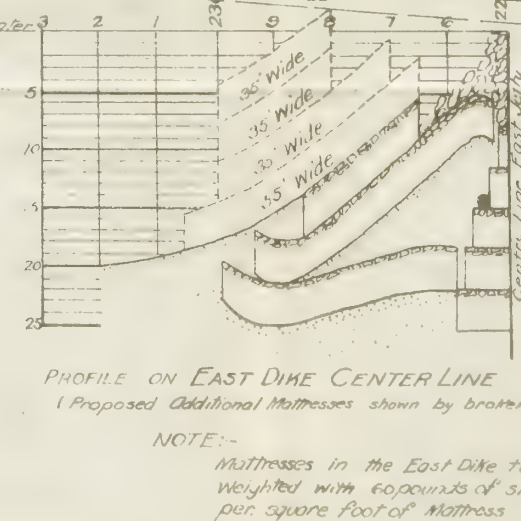 ater 3 2 1 23 9 8 7 6 22
5
10
15
20
25
35' Wide
35' Wide
35' Wide
35' Wide
PROFILE ON EAST DIKE CENTER LINE
(Proposed Additional Mattresses shown by broken
NOTE:-
Mattresses in the East Dike t
Weighted with 60 pounds of s
per square foot of Mattress